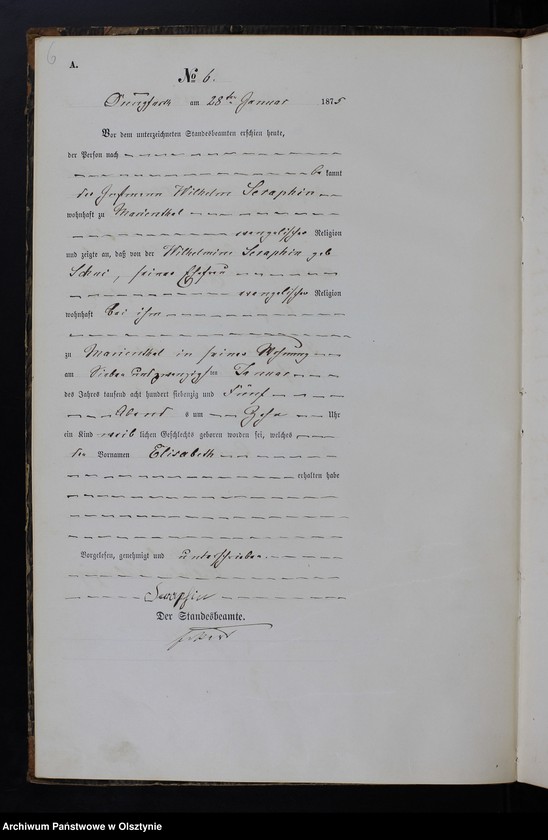 6
A.
No 6.
am 28ten Januar 1875
Vor dem unterzeichneten Standesbeamten erschien heute,
der Person nach
be kannt
der Wilhelm Seraphin
wohnhaft zu Marienthal
evangelischer Religion
und zeigte an, daß von der Wilhelmine Seraphin geb
seiner Ehefrau
evangelischer Religion
wohnhaft bei ihm
zu Marienthal in seiner Wohnung
am Sieben und zwanzigsten Januar
des Jahres tausend acht hundert siebenzig und Fünf
Abend s um Zehn Uhr
ein Kind weib lichen Geschlechts geboren worden sei, welches
den Vornamen Elisabeth
erhalten habe
Vorgelesen, genehmigt und unterschrieben
Seraphin
Der Standesbeamte.
Archiwum Państwowe w Olsztynie